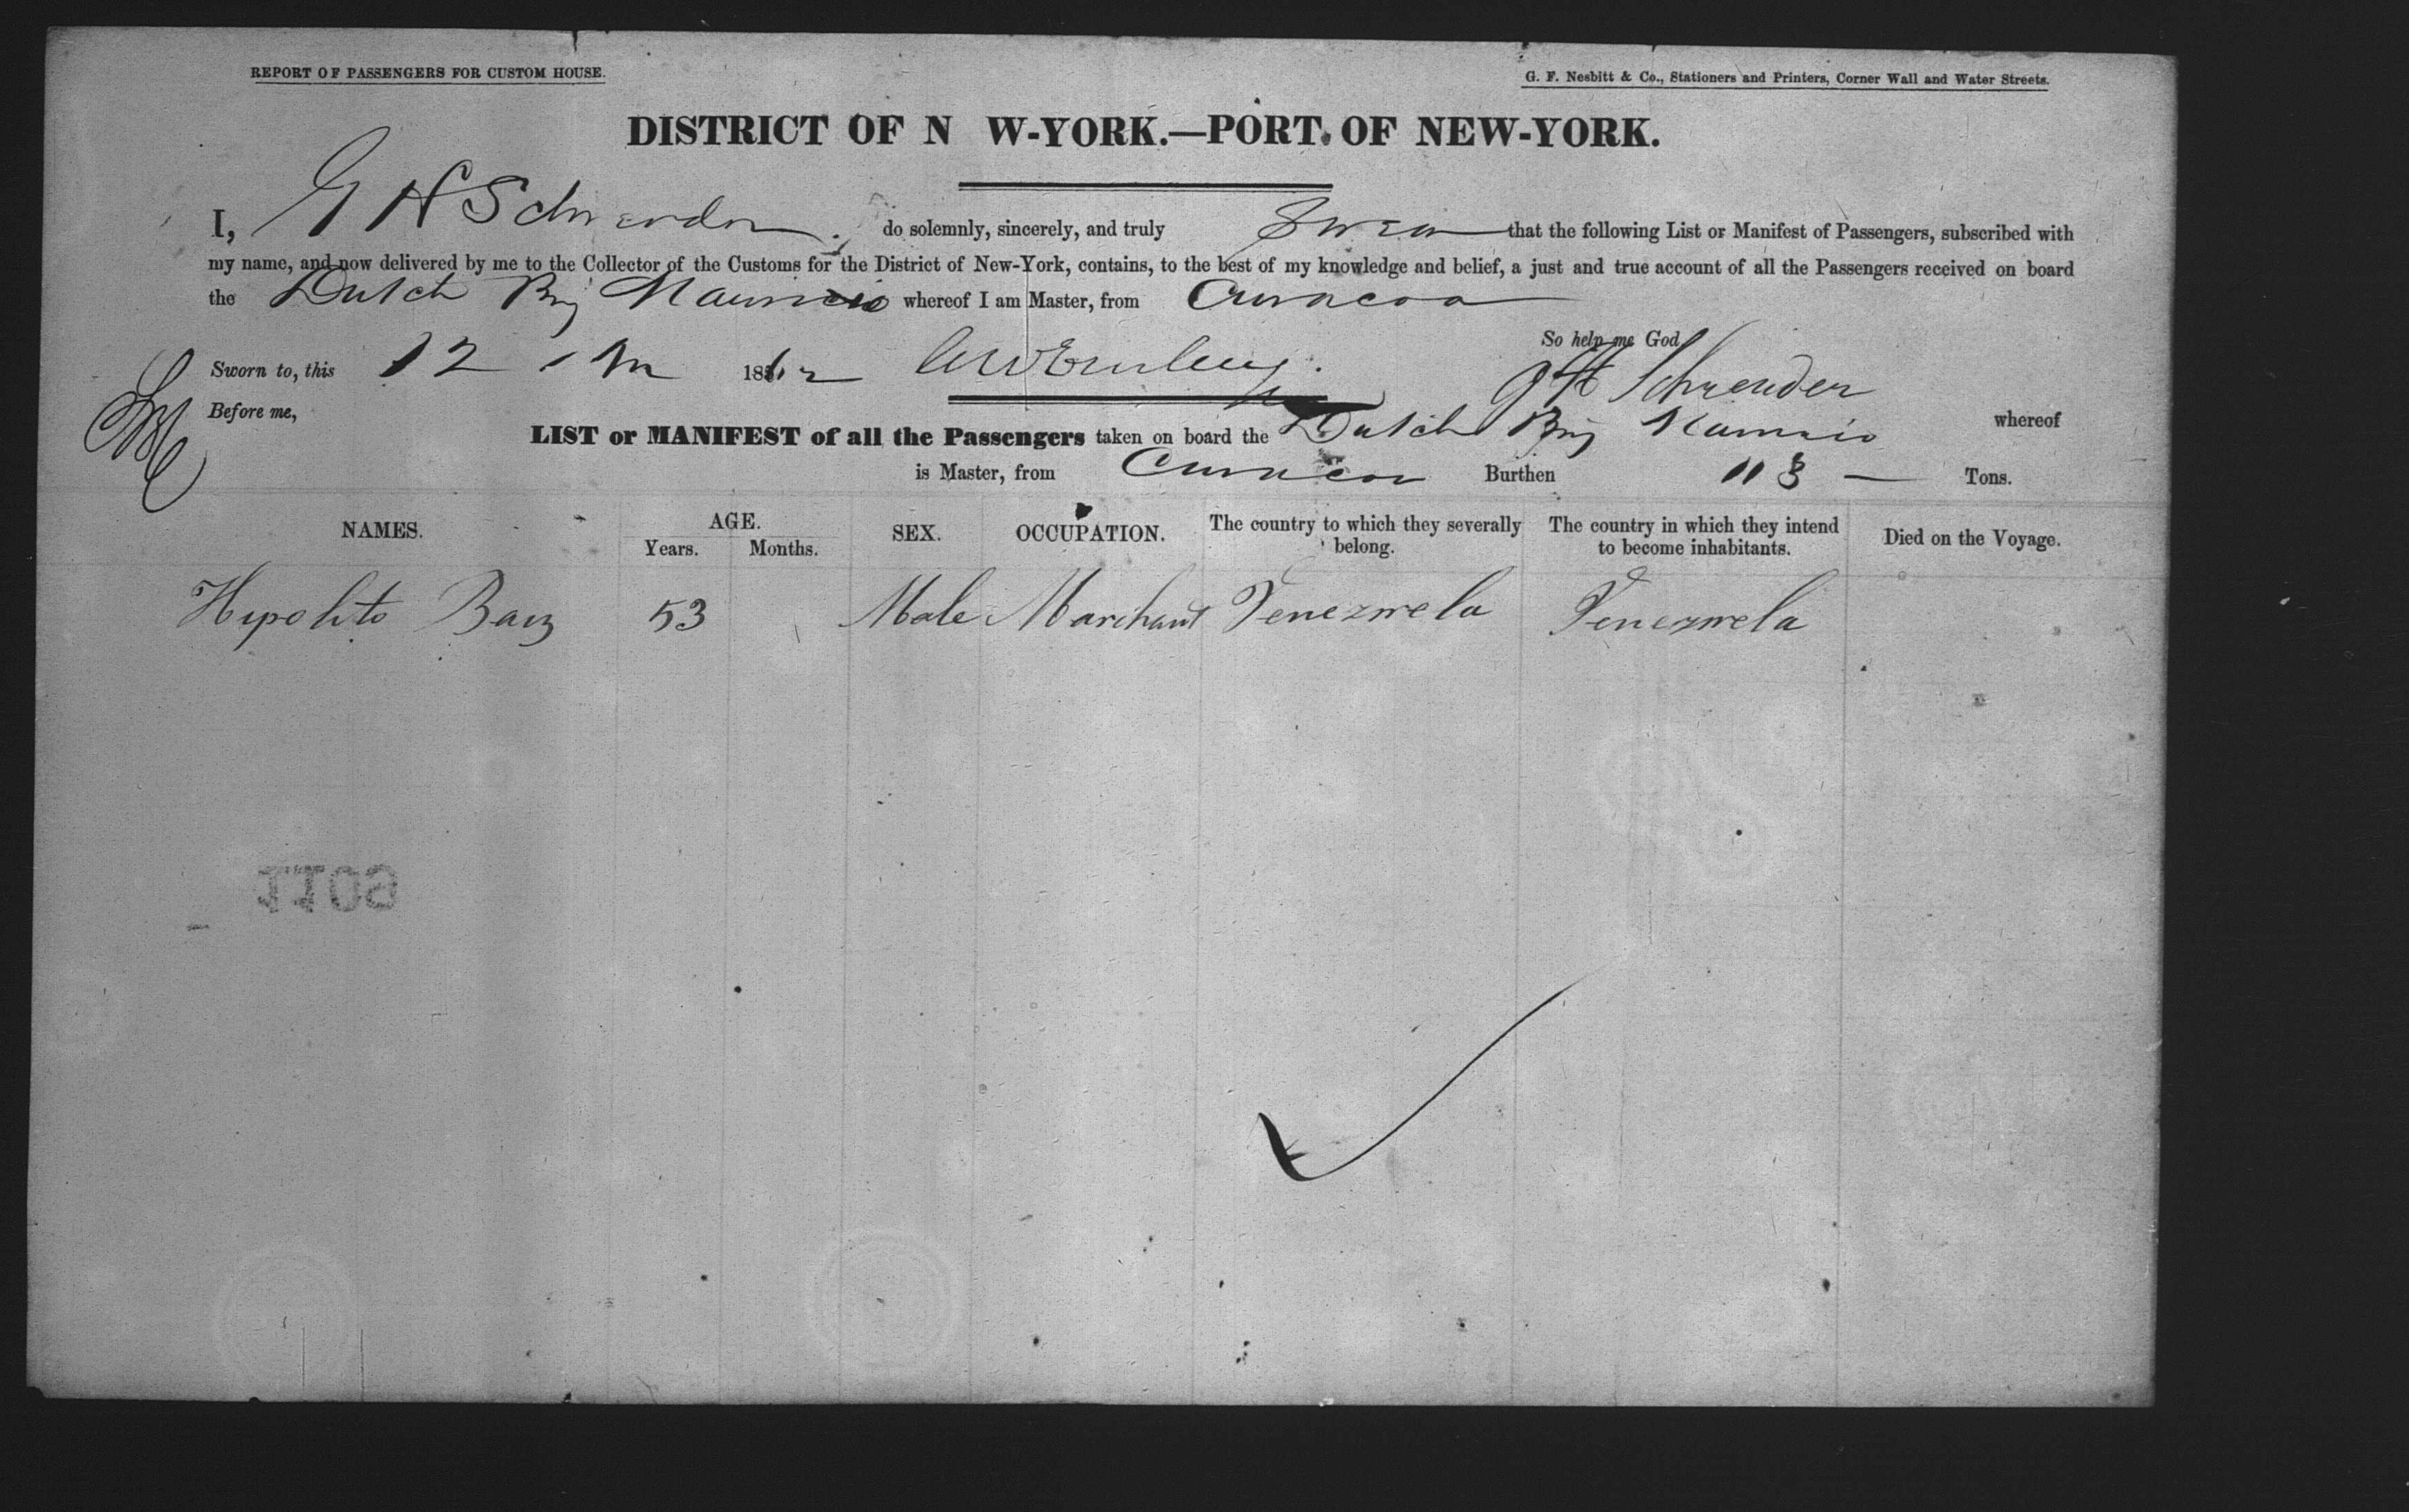 REPORT OF PASSENGERS FOR CUSTOM HOUSE.
G. F. Nesbitt & Co., Stationers and Printers, Corner Wall and Water Streets.
DISTRICT OF N W-YORK.—PORT OF NEW-YORK.
I, G H Schreuder do solemnly, sincerely, and truly Swear that the following List or Manifest of Passengers, subscribed with
my name, and now delivered by me to the Collector of the Customs for the District of New-York, contains, to the best of my knowledge and belief, a just and true account of all the Passengers received on board
the Dutch Brig whereof I am Master, from Curacoa
So help me God
Sworn to, this 12 1862 G H Schreuder
Before me,
LIST or MANIFEST of all the Passengers taken on board the Dutch Brig whereof
is Master, from Curacoa Burthen Tons.
NAMES. AGE. SEX. OCCUPATION. The country to which they severally belong. The country in which they intend to become inhabitants. Died on the Voyage.
Years. Months.
Hipolito Baiz 53 Male Marchant Venezuela Venezuela
1109